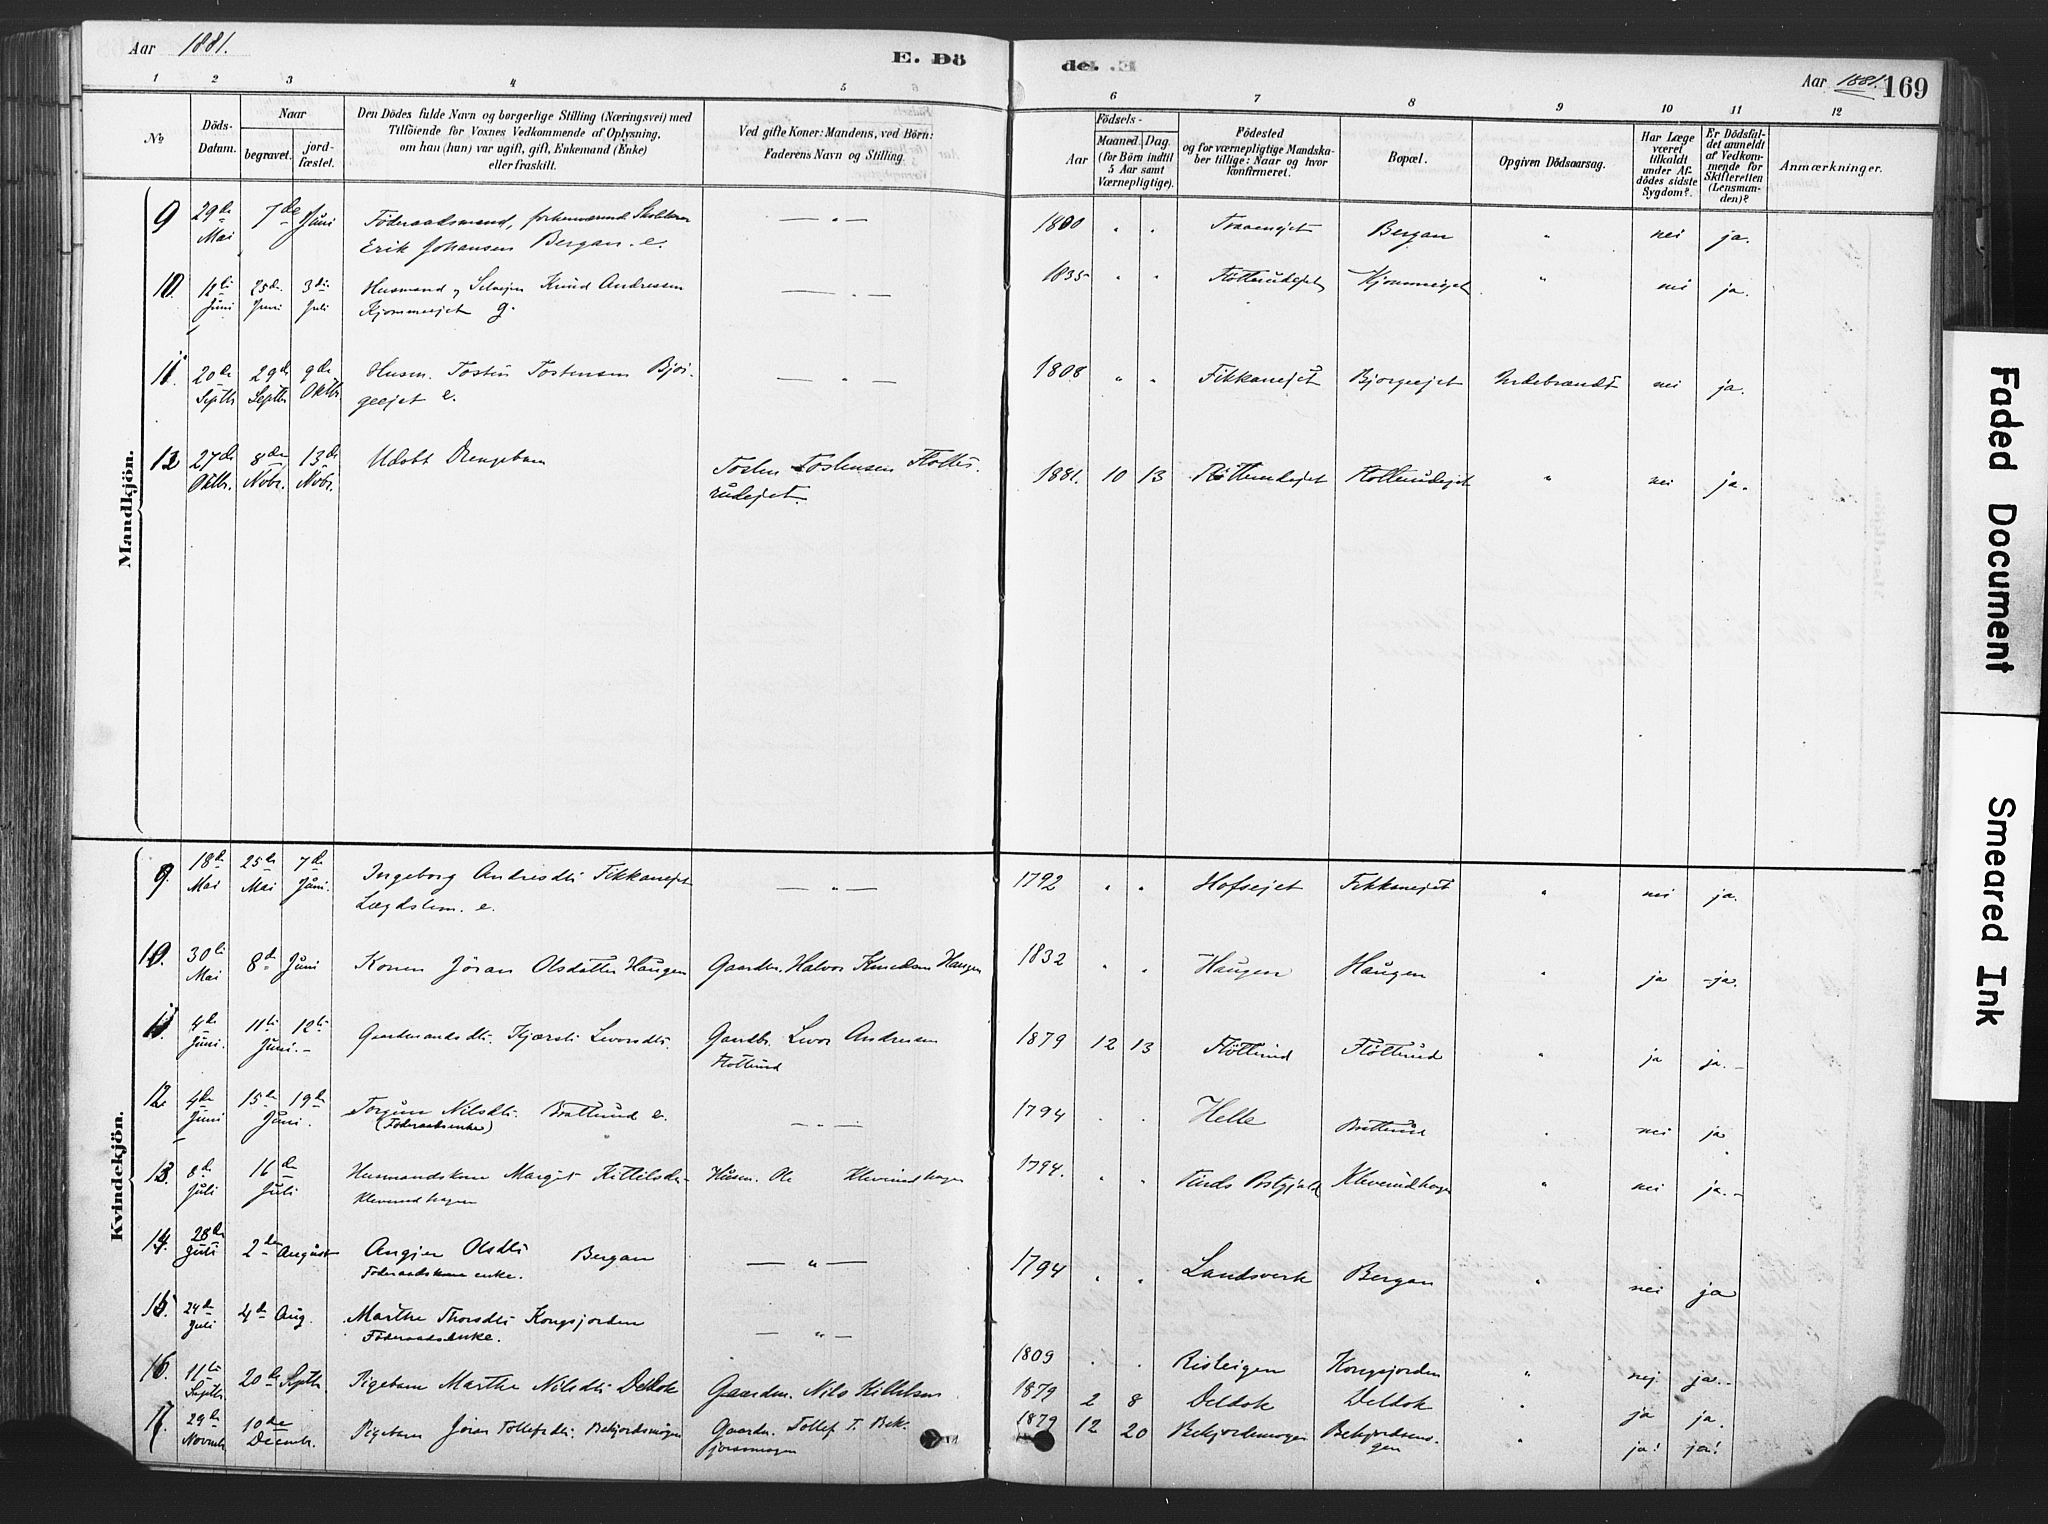 Aar 1881.
E. Dö
de.
Aar 1881. 169
1 2 3 4 5 6 7 8 9 10 11 12
No
Döds-
Datum.
Naar
begravet.
jord-
fæstet.
Den Dödes fulde Navn og borgerlige Stilling (Næringsvei) med
Tilföiende for Voxnes Vedkommende af Oplysning,
om han (hun) var ugift, gift, Enkemand (Enke)
eller fraskilt.
Ved gifte Koner: Mandens, ved Börn:
Faderens Navn og Stilling.
Födsels-
Aar
Maaned. Dag.
(for Börn indtil
5 Aar samt
Værnepligtige).
Födested
og for værnepligtige Mandska-
ber tillige: Naar og hvor
konfirmeret.
Bopæl.
Opgiven Dödsaarsag.
Har Læge
været
tilkaldt
under Af-
dödes sidste
Sygdom?.
Er Dödsfal-
det anmeldt
af Vedkom-
mende for
Skifteretten
(Lensman-
den)?
Anmærkninger.
Mandkjön.
9 29de Mai 7de Juni Föderaadsmand, forhenværende
Erik Johansen Bergan. e. — " — 1800 " " Bergan " nei ja.
10. Juni 25de Juni 3die Juli Husmand og Selveier Knud Andressen
Kjommeejet g. — " — 1835 " " Flötterudejet Kjommeejet " nei ja.
11. 20de Septbr 29de Septbr 9de Oktbr Husm. Tosten Tostensen Bjør-
geejet e. — " — 1808 " " Fikkanejet Bjorgeejet nei ja.
12 27de Oktbr. 8de Novbr. 13de Novbr. Udøbt Drengebarn Tosten Tostensen Flotte-
rudejet. 1881. 10 13 Flötterudejet Flotterudejet " nei ja.
Kvindekjön.
9. 18de Mai 25de Mai 7de Juni. Ingeborg Andresdtr Fikkanejet
Lægdslem. e. — " — 1792 " " Hofsejet Fikkanejet " nei ja.
10. 30te Mai 8de Juni Konen Jöran Olsdatter Haugen Gaardm. Halvor Knudsen Haugen 1832 " " Haugen Haugen " ja ja.
11. 4de Juni. 11te 12te Juni. Gaardmandsdtr. Kjersti Levorsdtr. Gaardbr. Levor Andresen
Flotterud 1879 12 13 Flötterud Flötterud " ja ja.
12. 4de Juni 15de 19de Juni. Torgun Nilsdtr. Bratterud e.
(Föderaadsenke) — " — 1794 " " Helle Bratterud " nei ja
13. 8de Juli 16de Juli Husmandskone Margit Kittilsdtr
Kleverudhagen Husm. Ole Kleverudhagen 1794. " " Tinds Kleverudhagen " nei ja.
14. 28de Juli 2de August Angjer Olsdtr Bergan
Föderaadskone enke. — " — 1794 " " Landsverk Bergan " nei ja
15. 24de Juli 4de Aug. Marthe Thorsdtr Kongsjorden
Föderaadsenke. — " — 1809 " " Risteigen Kongsjorden " nej ja.
16. 11te Septbr 20de Septbr. Pigebarn Marthe Nilsdtr Deldok Gaardm. Nils Kittelsen 1879 2 8 Deldok Deldok " ja ja.
17. 29de Novmbr 10de Decmbr. Pigebarn Jöran Tollefsdtr. Bekjordsmogen Gaardm. Tollef T. Bek-
jorsmogen 1879 12 20 Bekjordsmogen Bekjordsmo-
gen " ja! ja!
Faded Document
Smeared Ink